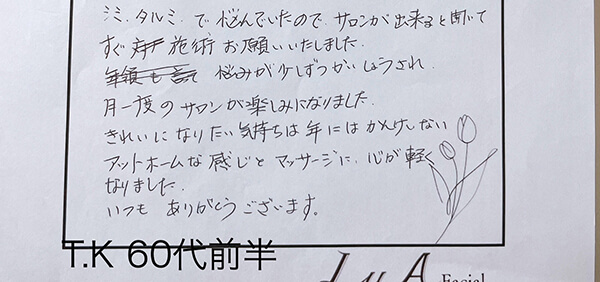 シミ、タルミ、で悩んでいたので、サロンが出来ると聞いて
すぐ施術お願いいたしました。
悩みが少しずつかいしょうされ、
月一度のサロンが楽しみになりました。
きれいになりたい気持ちは年にはかんけいない
アットホームな感じとマッサージに、心が軽く
なりました。
いつもありがとうございます。
T.K 60代前半
LuA Facial